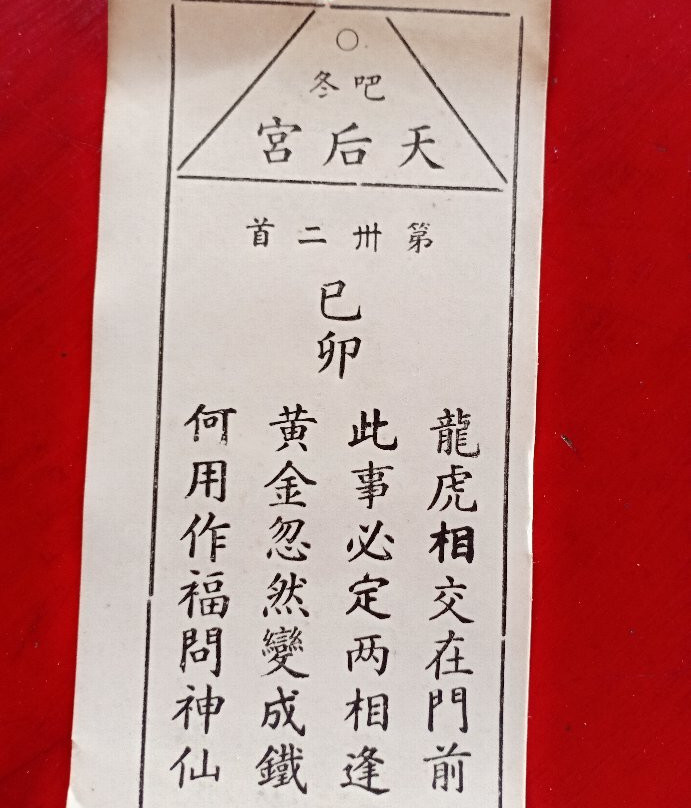 吧冬
天后宮
第卅二首
已卯
龍虎相交在門前
此事必定两相逢
黃金忽然變成鐵
何用作福問神仙